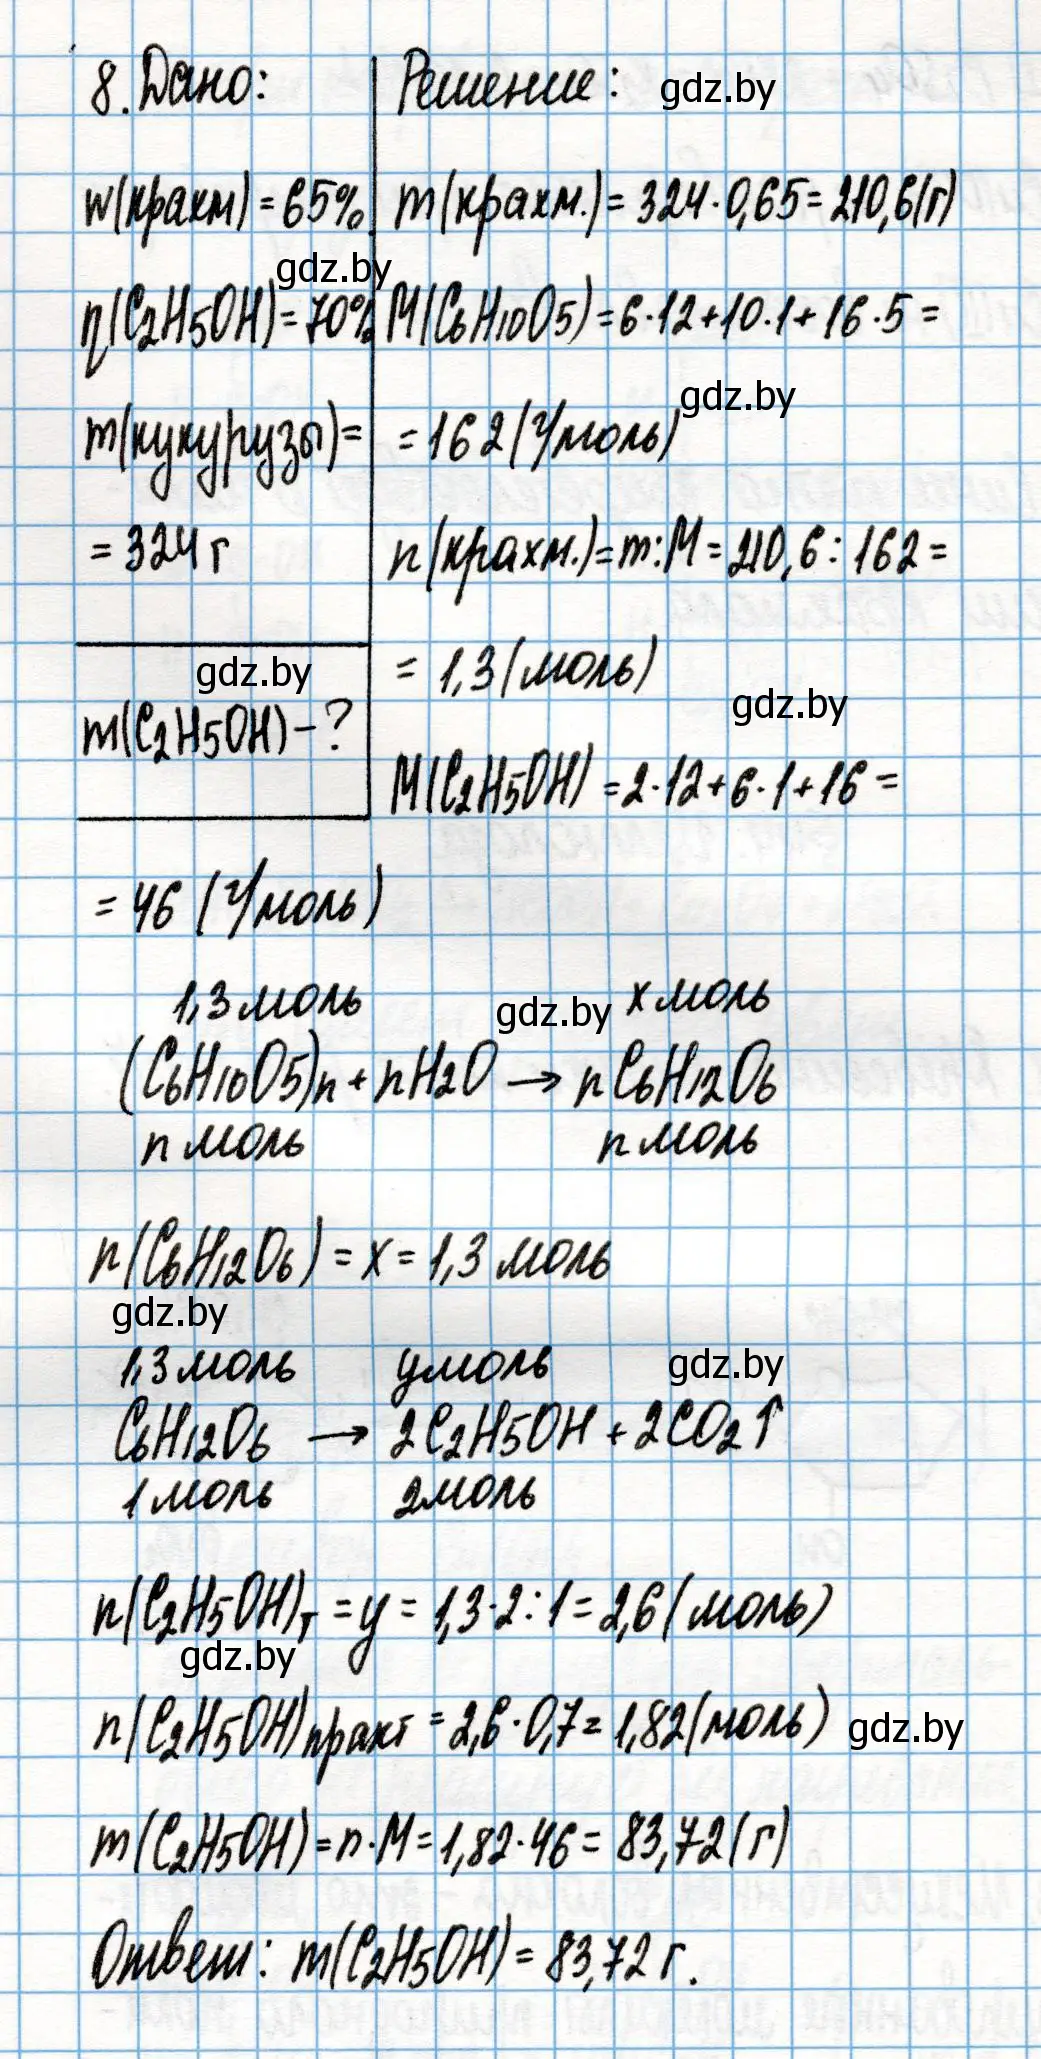 8. Дано:
w(крахм) = 65%
η(C2H5OH) = 70%
m(кукурузы) =
= 324 г
m(C2H5OH) - ?
Решение:
gdz.by
m(крахм.) = 324·0,65 = 210,6 (г)
gdz.by
M(C6H10O5) = 6·12+10·1+16·5 =
gdz.by
= 162 (г/моль)
n(крахм.) = m:M = 210,6 : 162 =
gdz.by
= 1,3 (моль)
gdz.by
M(C2H5OH) = 2·12+6·1+16 =
= 46 (г/моль)
1,3 моль gdz.by x моль
(C6H10O5)n + nH2O → nC6H12O6
n моль n моль
n(C6H12O6) = x = 1,3 моль
gdz.by
1,3 моль y моль gdz.by
C6H12O6 → 2C2H5OH + 2CO2↑
1 моль 2 моль
n(C2H5OH)т = y = 1,3·2:1 = 2,6 (моль)
gdz.by
n(C2H5OH)практ = 2,6·0,7 = 1,82 (моль) gdz.by
m(C2H5OH) = n·M = 1,82·46 = 83,72 (г)
Ответ: m(C2H5OH) = 83,72 г.